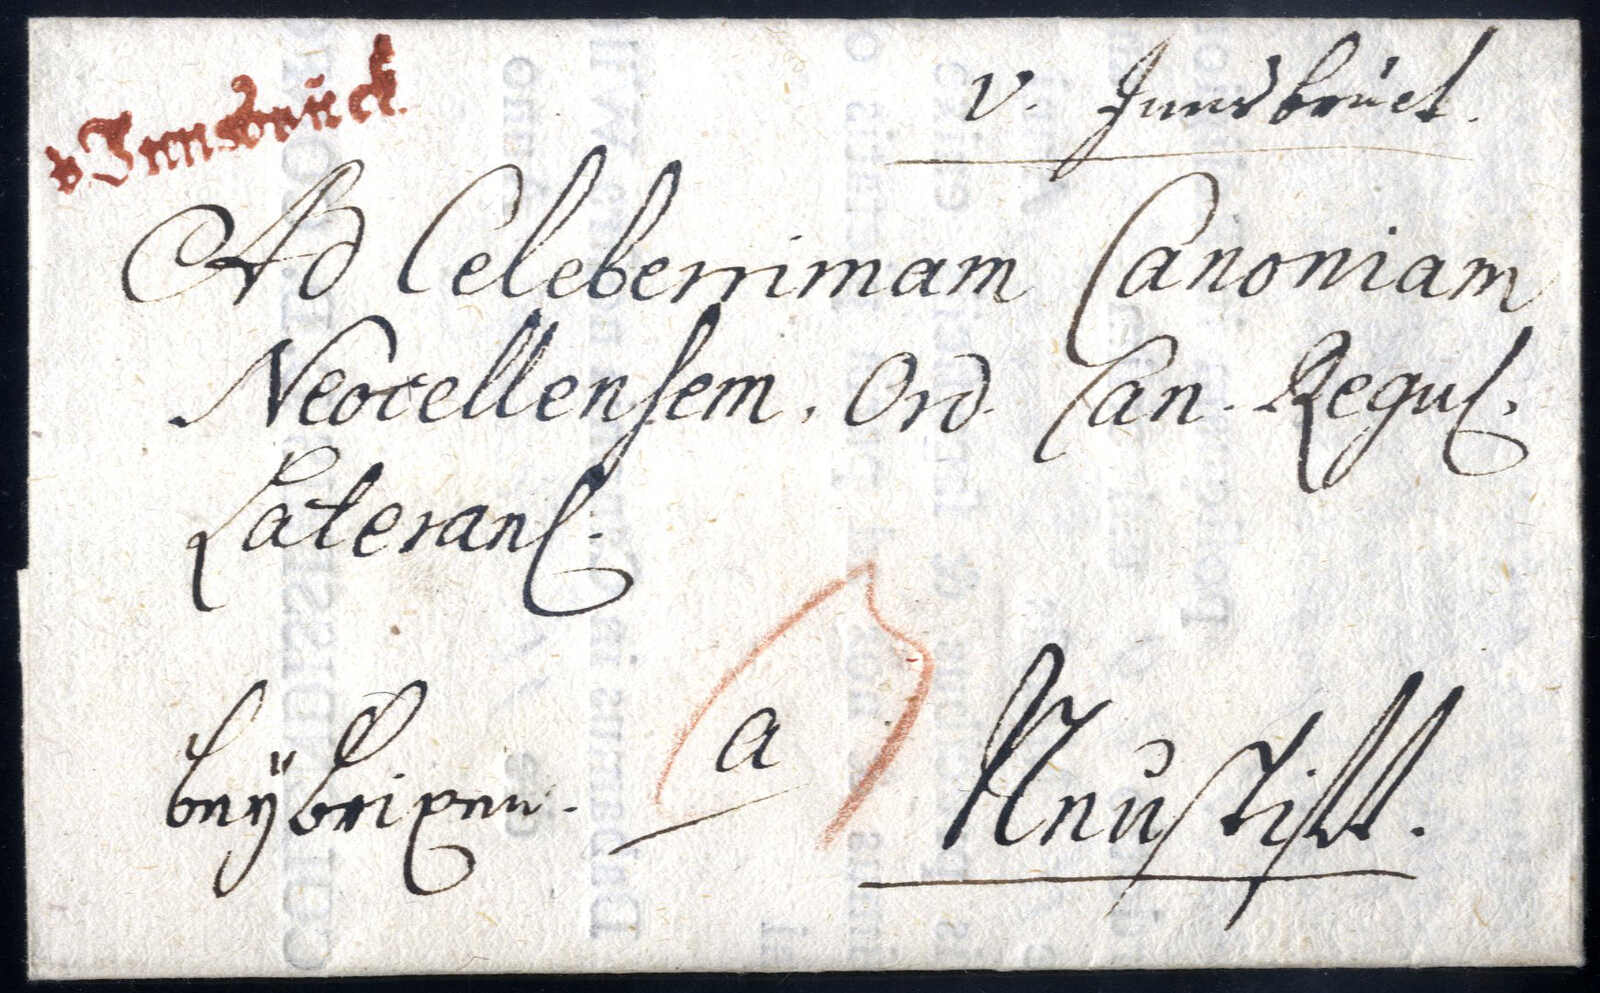 v. Innsbruck.
v. Innsbruck.
Ad Celeberrimam Canoniam
Neocellensem. Ord. Can. Regul.
Lateranens.
a
beÿ brixen. Neustifft.